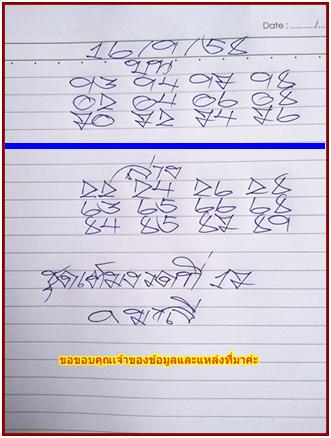 Date : ........../...
16/9/58
บน
93 94 97 98
02 04 06 08
70 72 74 76
ล่าง
22 24 26 28
63 65 66 68
84 85 87 89
ชุดเต็มงวดที่ 17
ขอขอบคุณเจ้าของข้อมูลและแหล่งที่มาค่ะ